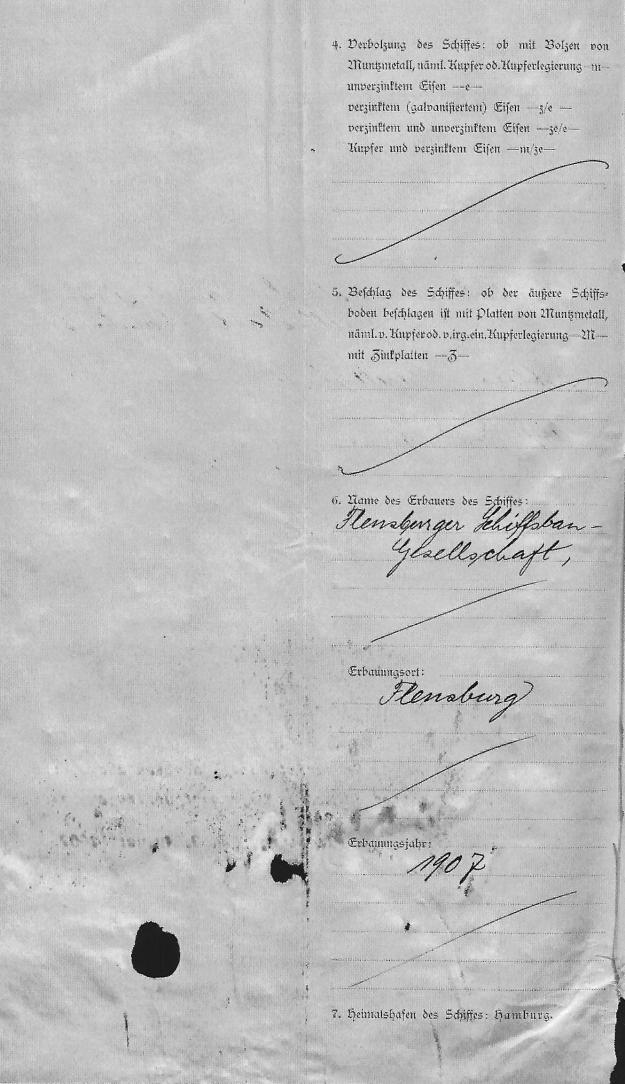 4. Verbolzung des Schiffes: ob mit Bolzen von
Muntzmetall, näml. Kupfer od. Kupferlegierung —m—
unverzinktem Eisen —e—
verzinktem (galvanisiertem) Eisen —z/e —
verzinktem und unverzinktem Eisen —ze/e—
Kupfer und verzinktem Eisen —m/ze—
5. Beschlag des Schiffes: ob der äußere Schiffs-
boden beschlagen ist mit Platten von Muntzmetall,
näml. v. Kupfer od. v. irg. ein. Kupferlegierung —M—
mit Zinkplatten —Z—
6. Name des Erbauers des Schiffes:
Flensburger Schiffsbau-
Gesellschaft,
Erbauungsort:
Flensburg
Erbauungsjahr:
1907
7. Heimatshafen des Schiffes: Hamburg.